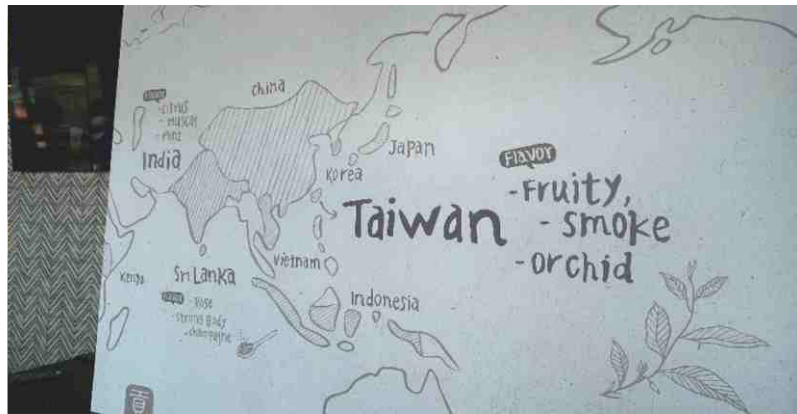 China
Flavor
- citrus
- muscat
- pine
India
Japan
Korea
Flavor
- Fruity,
- smoke
- orchid
Taiwan
Vietnam
Kenya
Sri Lanka
Flavor
- Rose
- strong body
- champagne
Indonesia
貢